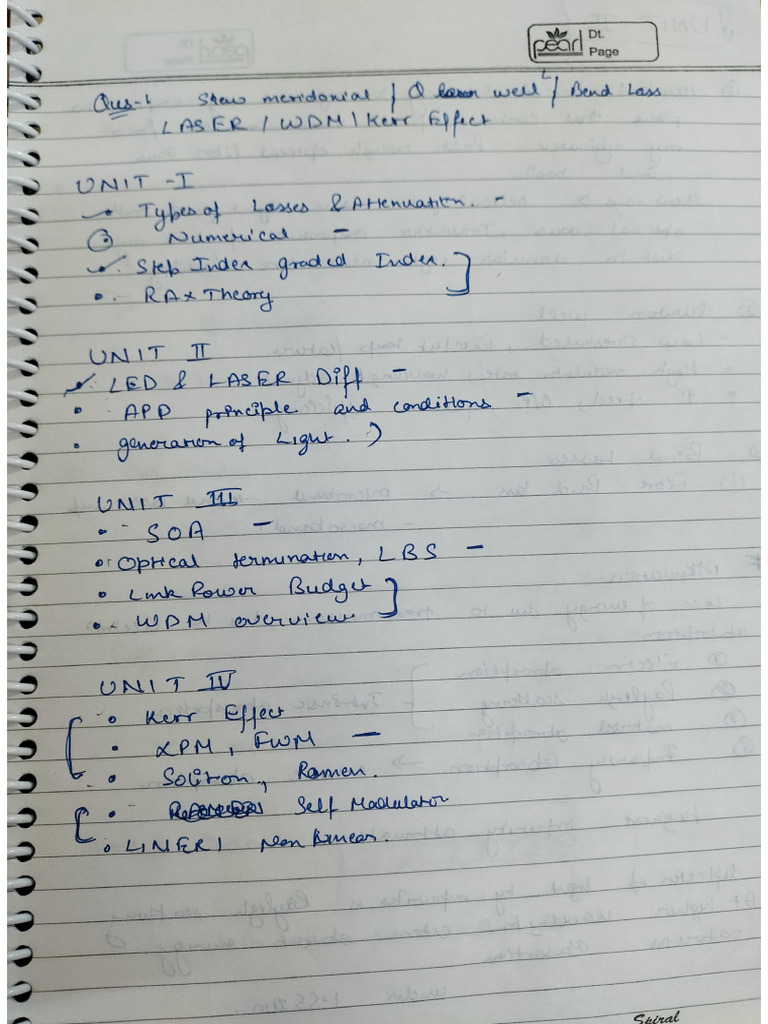 pearl Dt.
Page
Ques-1 Skew meridonial / Q well / Bend Loss
LASER / WDM / Kerr Effect
UNIT -I
Types of Losses & Attenuation. -
Numerical -
Step Index graded Index.
RAx Theory
UNIT II
LED & LASER Diff -
APD principle and conditions -
generation of Light.
UNIT III
SOA -
Optical termination, LBS -
Link Power Budget
WDM overview
UNIT IV
Kerr Effect
XPM, FWM -
Soliton, Ramen.
Self Modulator
LINER / Non linear.
Spiral